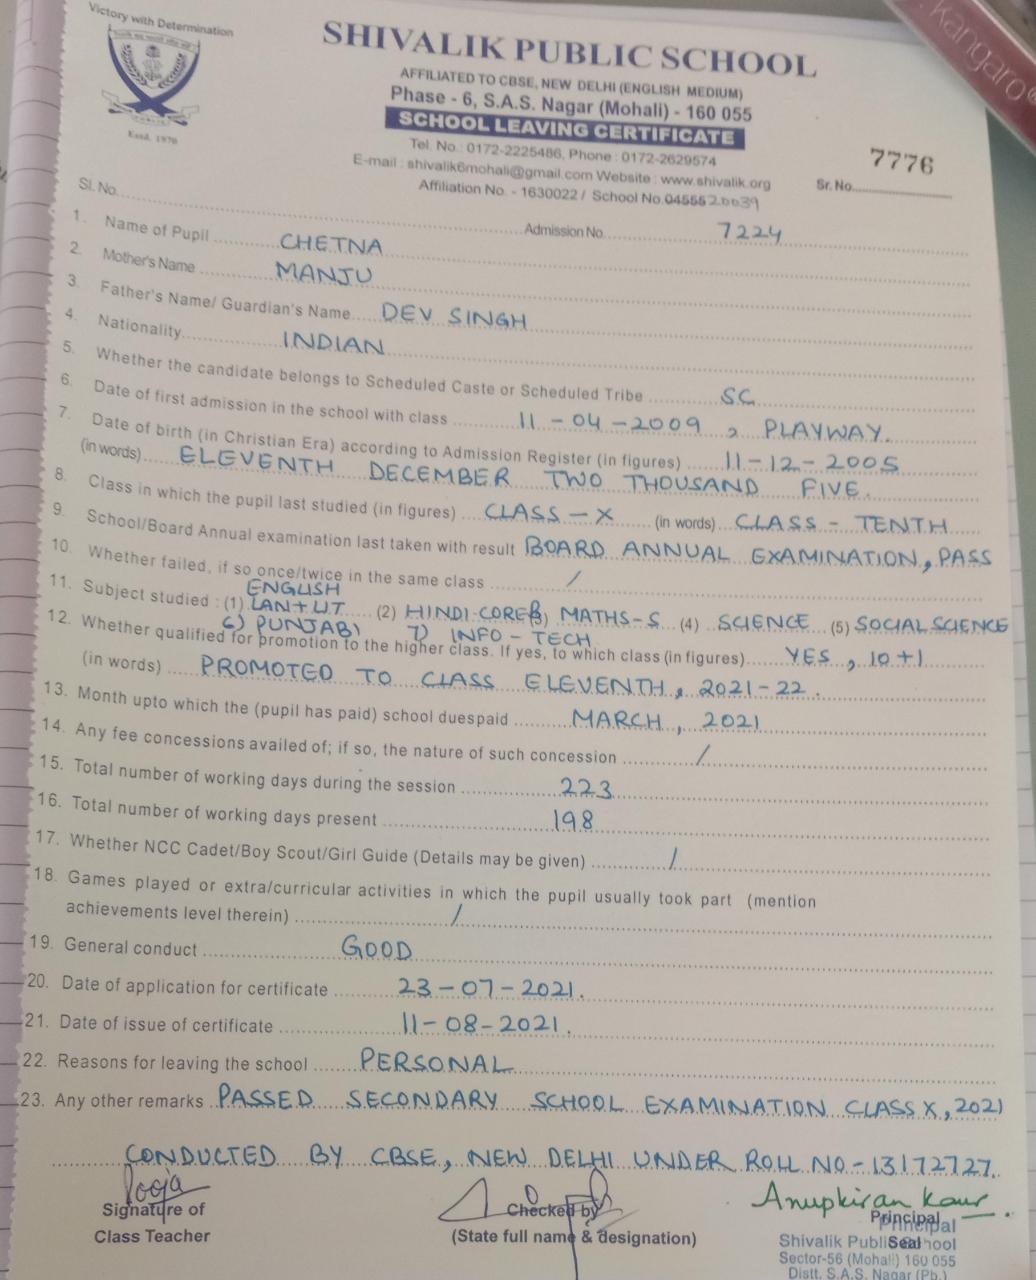 Victory with Determination
Estd. 1970
SHIVALIK PUBLIC SCHOOL
AFFILIATED TO CBSE, NEW DELHI (ENGLISH MEDIUM)
Phase - 6, S.A.S. Nagar (Mohali) - 160 055
SCHOOL LEAVING CERTIFICATE
Tel. No.: 0172-2225486, Phone : 0172-2629574
E-mail : shivalik6mohali@gmail.com Website : www.shivalik.org
Affiliation No. - 1630022 / School No.
7776
Sr. No.
kangaro
Sl. No. Admission No. 7224
1. Name of Pupil CHETNA
2. Mother's Name MANJU
3. Father's Name/ Guardian's Name DEV SINGH
4. Nationality INDIAN
5. Whether the candidate belongs to Scheduled Caste or Scheduled Tribe SC
6. Date of first admission in the school with class 11-04-2009, PLAYWAY.
7. Date of birth (in Christian Era) according to Admission Register (in figures) 11-12-2005
(in words) ELEVENTH DECEMBER TWO THOUSAND FIVE.
8. Class in which the pupil last studied (in figures) CLASS-X (in words) CLASS - TENTH
9. School/Board Annual examination last taken with result BOARD ANNUAL EXAMINATION, PASS
10. Whether failed, if so once/twice in the same class /
11. Subject studied : (1) ENGLISH LAN+LIT (2) HINDI-CORE (3) MATHS-S (4) SCIENCE (5) SOCIAL SCIENCE
6) PUNJABI 7) INFO-TECH
12. Whether qualified for promotion to the higher class. If yes, to which class (in figures) YES, 10+1
(in words) PROMOTED TO CLASS ELEVENTH, 2021-22.
13. Month upto which the (pupil has paid) school duespaid MARCH, 2021
14. Any fee concessions availed of; if so, the nature of such concession /
15. Total number of working days during the session 223
16. Total number of working days present 198
17. Whether NCC Cadet/Boy Scout/Girl Guide (Details may be given) /
18. Games played or extra/curricular activities in which the pupil usually took part (mention
achievements level therein) /
19. General conduct GOOD
20. Date of application for certificate 23-07-2021.
21. Date of issue of certificate 11-08-2021.
22. Reasons for leaving the school PERSONAL
23. Any other remarks PASSED SECONDARY SCHOOL EXAMINATION CLASS X, 2021
CONDUCTED BY CBSE, NEW DELHI UNDER ROLL NO-13172727.
Pooja
Signature of
Class Teacher
Checked by
(State full name & designation)
Anupkiran Kaur
Principal
Principal
Seal
Shivalik Public School
Sector-56 (Mohali) 160 055
Distt. S.A.S. Nagar (Pb.)